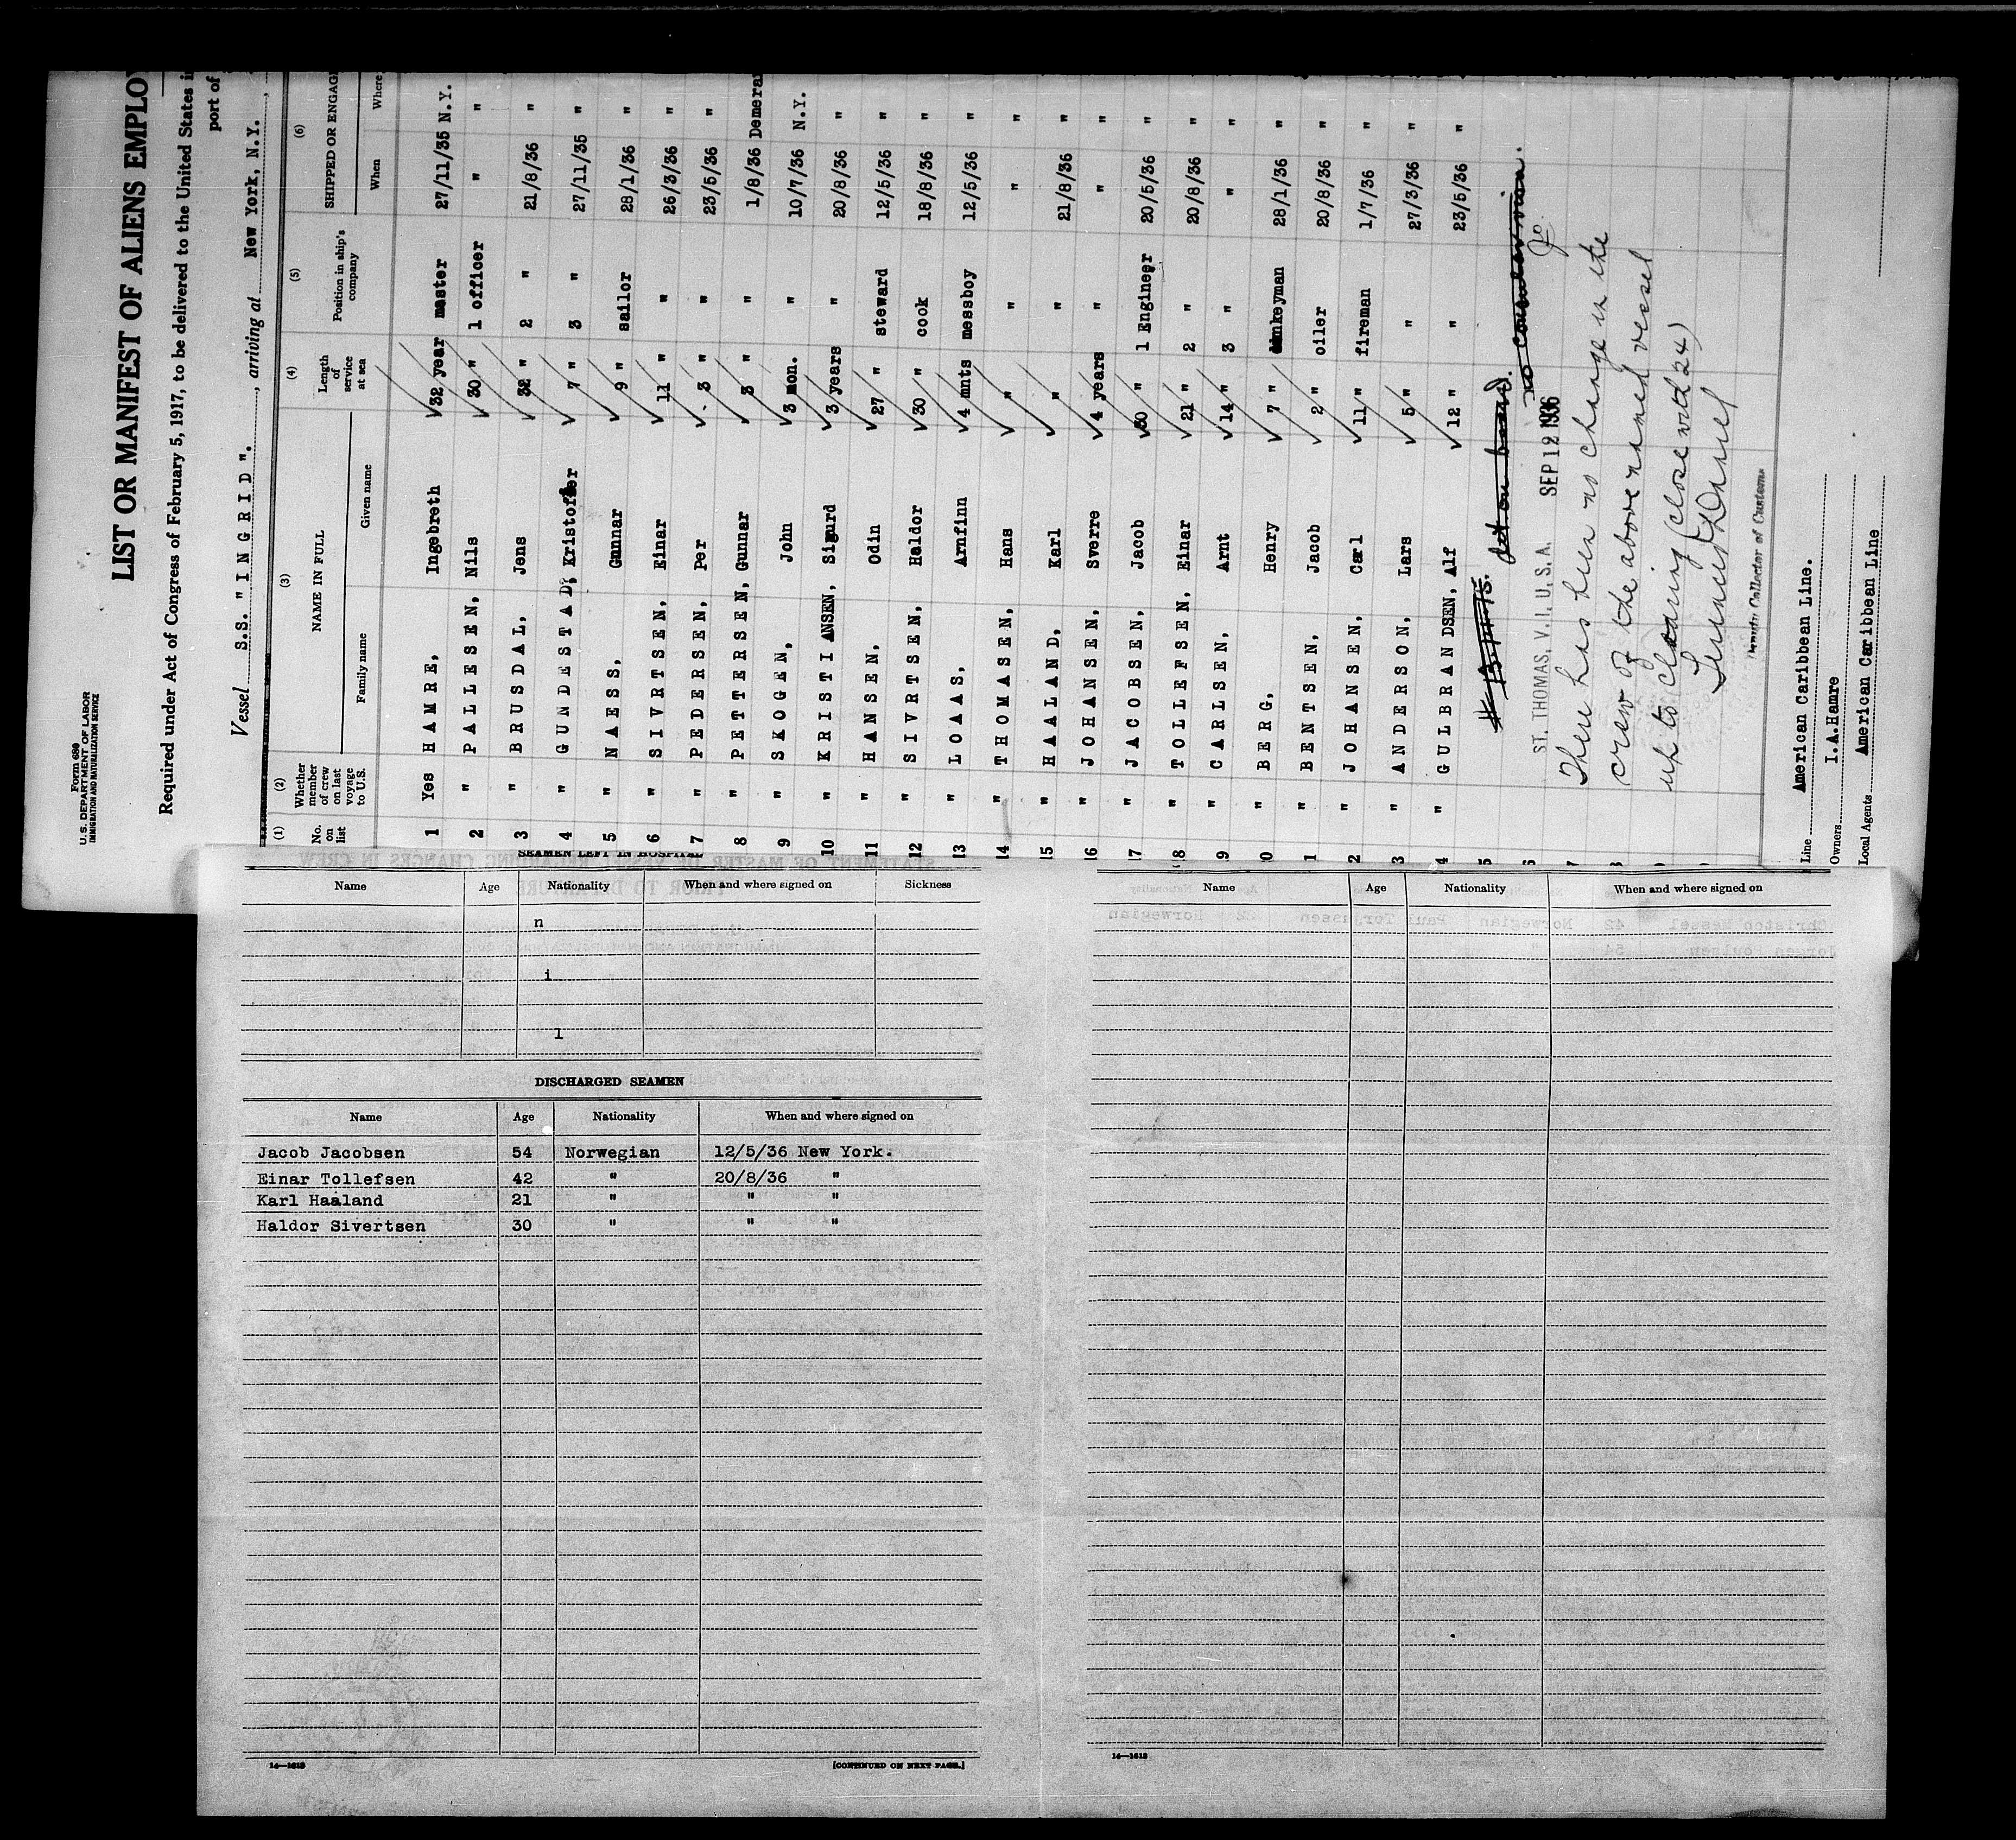 Form 689
U. S. DEPARTMENT OF LABOR
IMMIGRATION AND NATURALIZATION SERVICE
LIST OR MANIFEST OF ALIENS EMPLO
Required under Act of Congress of February 5, 1917, to be delivered to the United States i
port of
Vessel S.S. "INGRID". , arriving at New York, N.Y. ,
(1) (2) (3) (4) (5) (6)
No. on list Whether member of crew on last voyage to U.S. NAME IN FULL Length of service at sea Position in ship's company SHIPPED OR ENGAG
Family name Given name When Where
1 Yes HAMRE, Ingebreth 32 year master 27/11/35 N.Y.
2 " PALLESEN, Nils 30 " 1 officer " "
3 " BRUSDAL, Jens 32 " 2 " 21/8/36 "
4 " GUNDESTAD, Kristoffer 7 " 3 " 27/11/35 "
5 " NAESS, Gunnar 9 " sailor 28/1/36 "
6 " SIVRTSEN, Einar 11 " " 26/3/36 "
7 " PEDERSEN, Per 3 " " 23/5/36 "
8 " PETTERSEN, Gunnar 3 " " 1/8/36 Demera
9 " SKOGEN, John 3 mon. " 10/7/36 N.Y.
10 " KRISTIANSEN, Sigurd 3 years " 20/8/36 "
11 " HANSEN, Odin 27 " steward 12/5/36 "
12 " SIVRTSEN, Haldor 30 " cook 18/8/36 "
13 " LOAAS, Arnfinn 4 mnts messboy 12/5/36 "
14 " THOMASEN, Hans " " " "
15 " HAALAND, Karl " " 21/8/36 "
16 " JOHANSEN, Sverre 4 years " " "
17 " JACOBSEN, Jacob 30 " 1 Engineer 20/5/36 "
18 " TOLLEFSEN, Einar 21 " 2 " 20/8/36 "
9 " CARLSEN, Arnt 14 " 3 " " "
0 " BERG, Henry 7 " donkeyman 28/1/36 "
1 " BENTSEN, Jacob 2 " oiler 20/8/36 "
2 " JOHANSEN, Carl 11 " fireman 1/7/36 "
3 " ANDERSON, Lars 5 " " 27/3/36 "
4 " GULBRANDSEN, Alf 12 " " 23/5/36 "
5
6
not on board.
ST. THOMAS, V. I. U. S. A. SEP 12 1936
There has been no change in the
crew of the above named vessel
up to clearing (close with 24)
Deputy Collector of Customs
Line American Caribbean Line.
Owners I.A.Hamre
Local Agents American Caribbean Line
SEAMEN LEFT IN HOSPITAL
Name Age Nationality When and where signed on Sickness
n
i
l
DISCHARGED SEAMEN
Name Age Nationality When and where signed on
Jacob Jacobsen 54 Norwegian 12/5/36 New York.
Einar Tollefsen 42 " 20/8/36 "
Karl Haaland 21 " " "
Haldor Sivertsen 30 " " "
14—1613 [CONTINUED ON NEXT PAGE.]
Name Age Nationality When and where signed on
14—1613